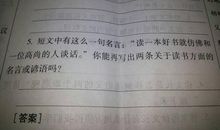 议
5. 短文中有这么一句名言：“读一本好书就仿佛和
一位高尚的人谈话。”你能再写出两条关于读书方面的
名言或谚语吗？
[答案]